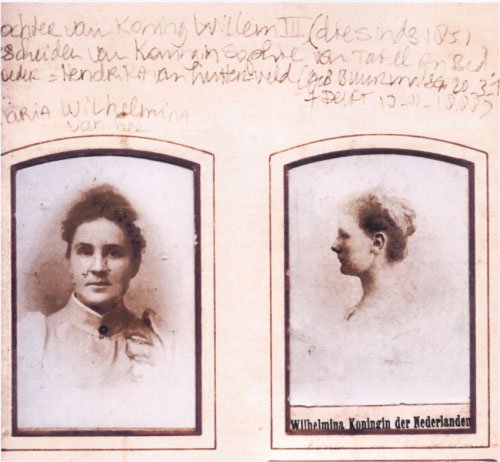 ochter van Koning Willem III (die sinds 1855
gescheiden van Koningin Sophie van Tafel en Bed
Moeder = Hendrika van
+ Delft 13-11-1883
Maria Wilhelmina
van
Wilhelmina Koningin der Nederlanden